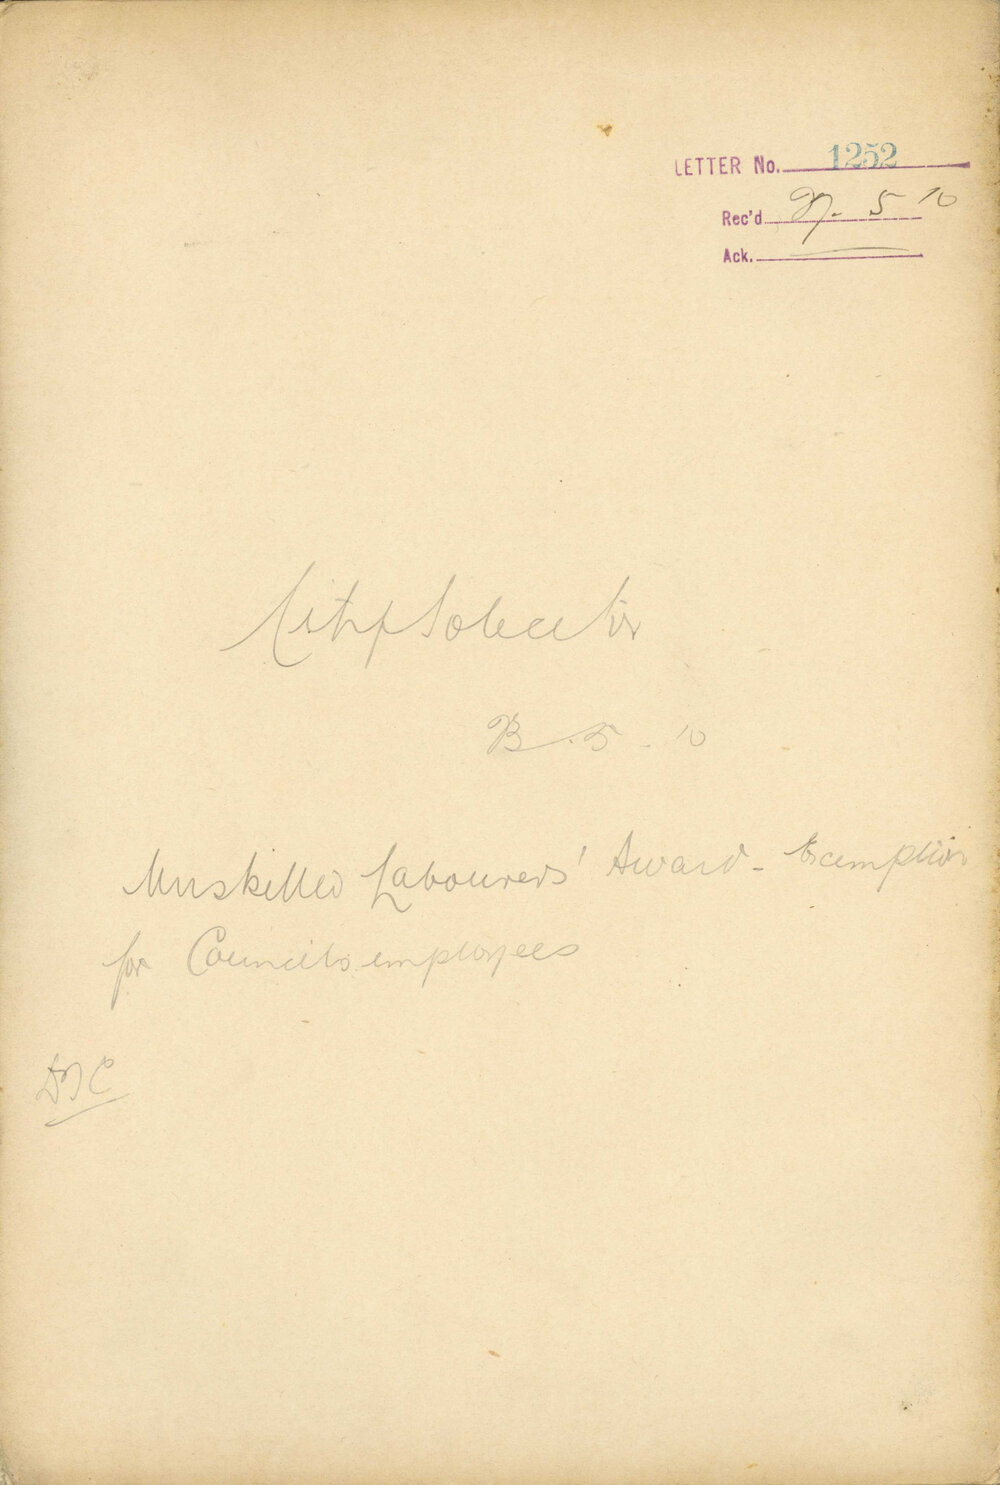 LETTER No. 1252
Rec'd 5 10
Ack.
City Solicitor
5. 10
Unskilled Labourers' Award - Exemption
for Councils employees